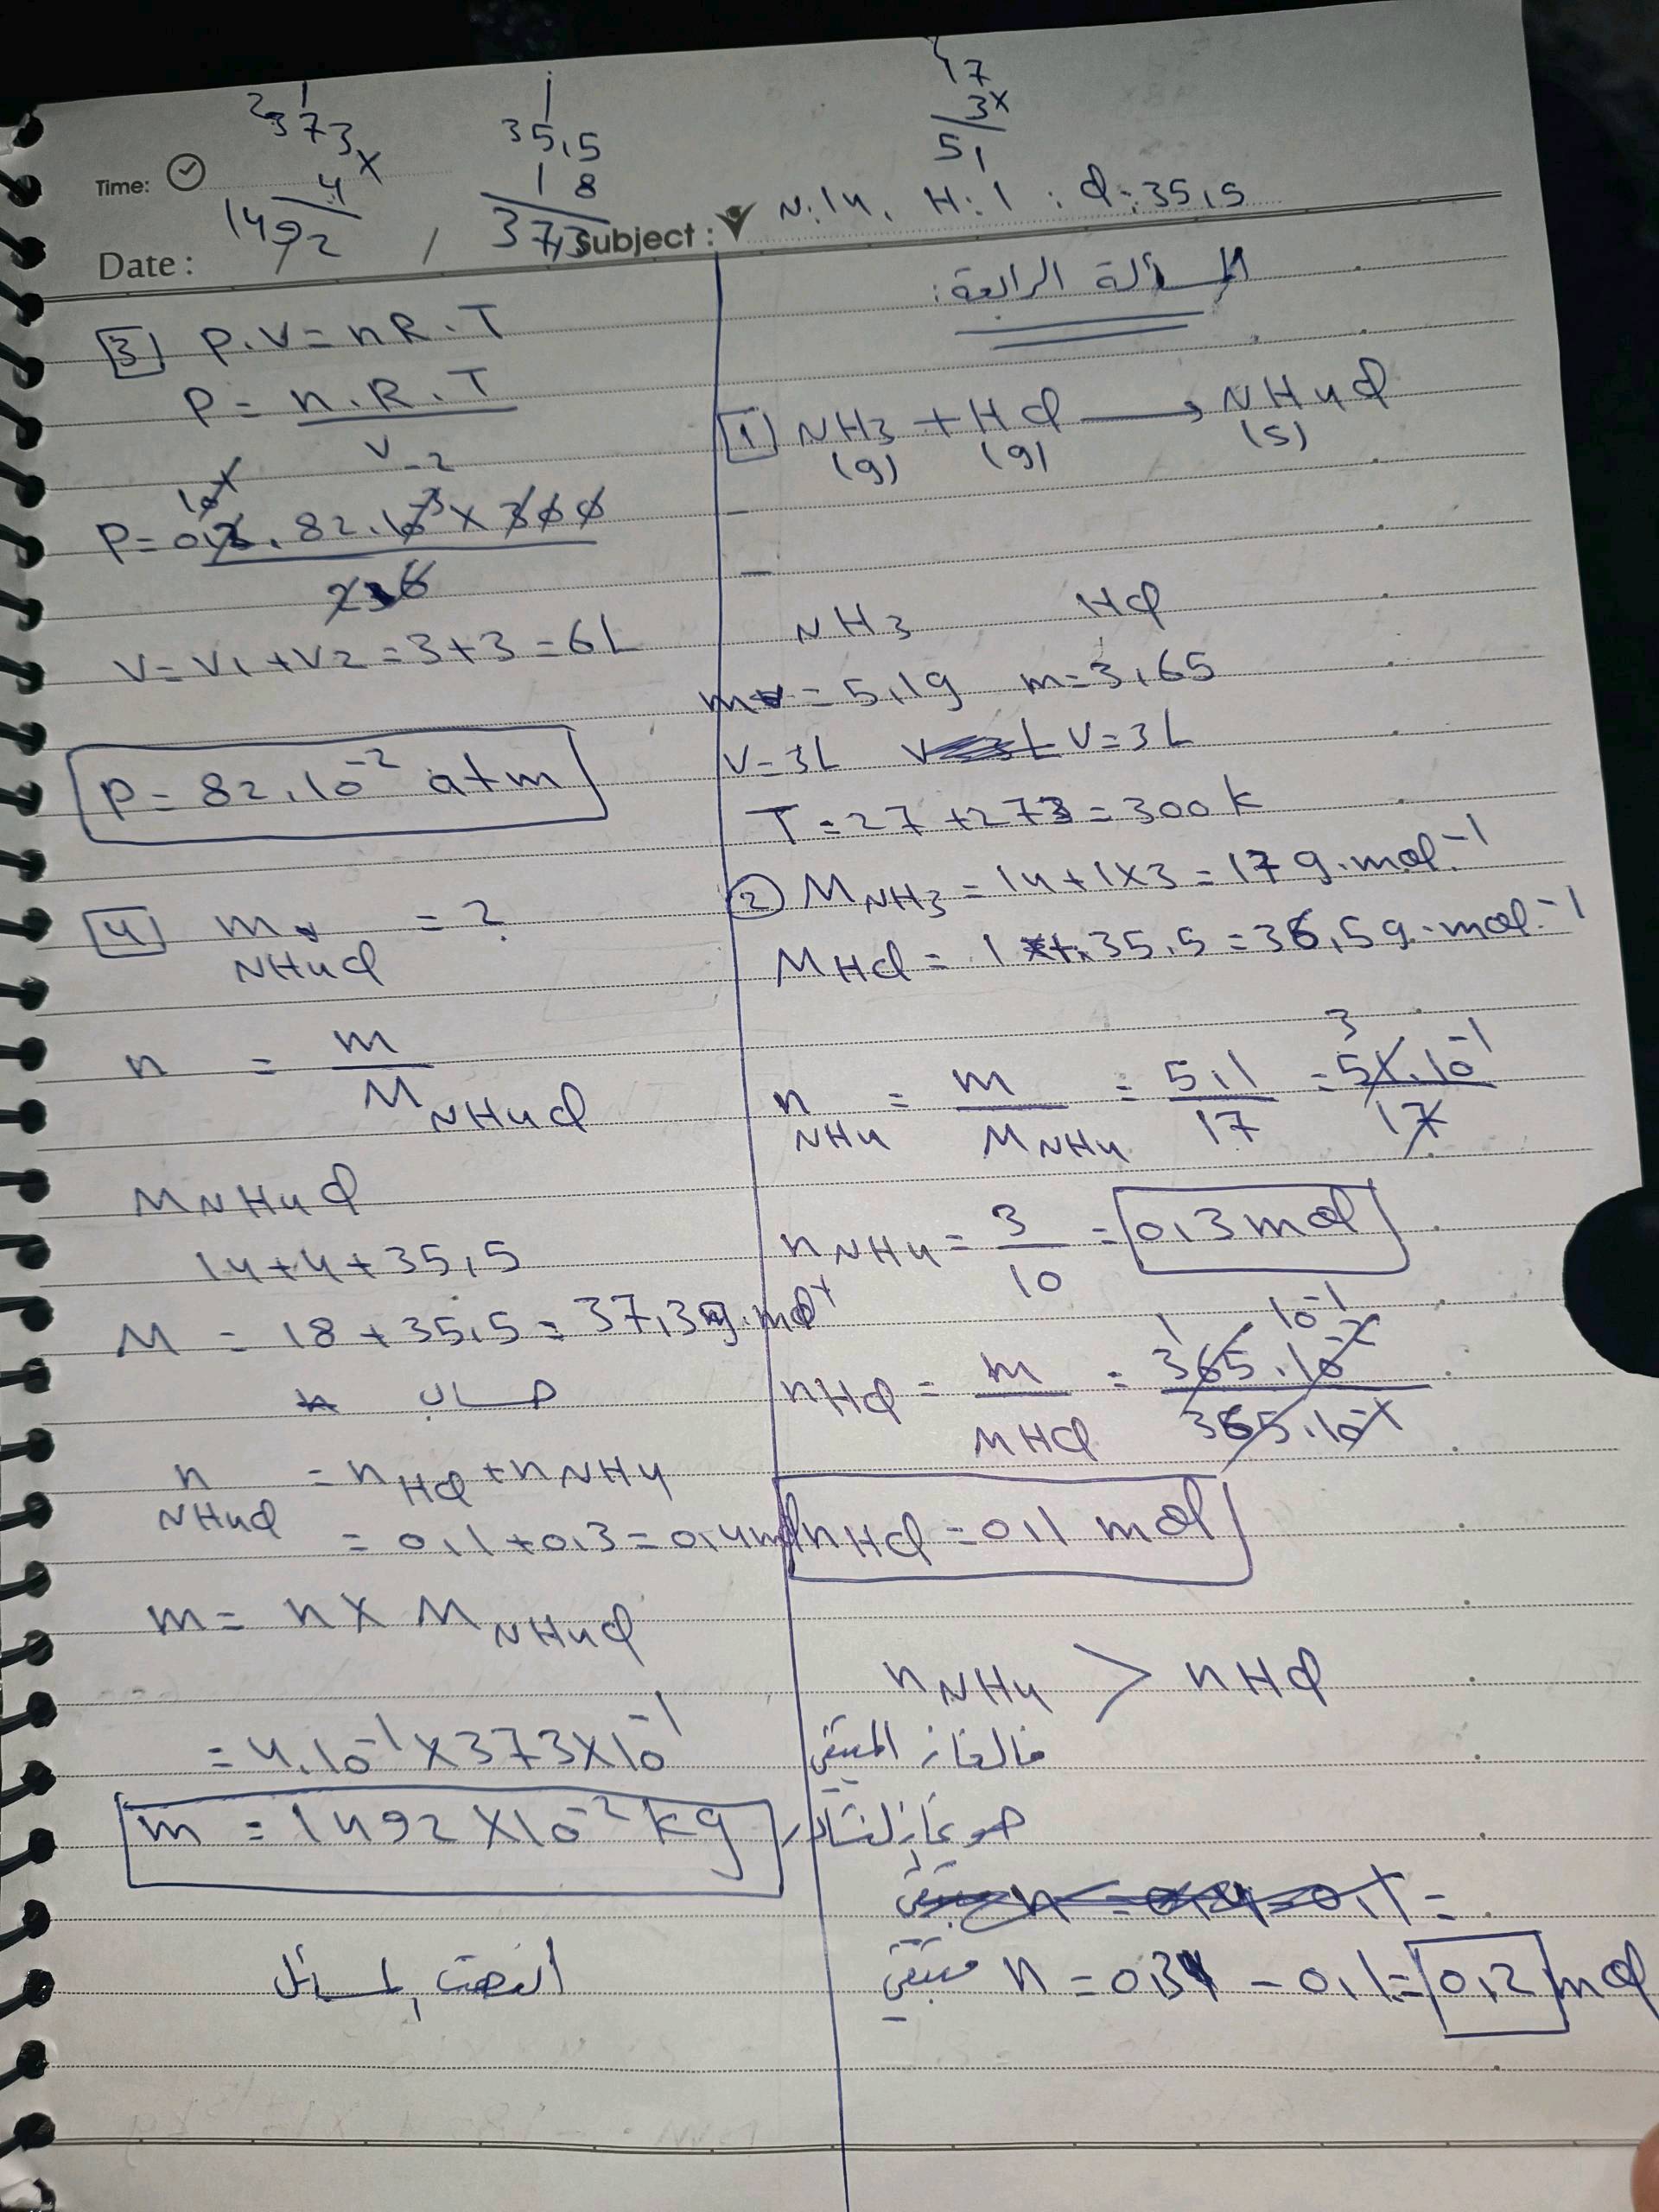 2 1
373
×
4
1492
1
35,5
1 8
37,3
17
3×
51
Time:
Date :
/
Subject :
N:14, H:1 : Cl:35,5
المسألة الرابعة:
[1] NH3 + HCl → NH4Cl
(g) (g) (s)
NH3 HCl
m = 5,1g m=3,65
V=3L V=3L
T=27+273=300k
(2) M NH3 = 14+1×3=17 g.mol⁻¹
M HCl = 1 + 35,5=36,5g.mol⁻¹
n NH4 = m / M NH4 = 5,1 / 17 = 3 51.10⁻¹ / 17
n NH4 = 3 / 10 = 0,3 mol
n HCl = m / M HCl = 1 365.10⁻² 10⁻¹ / 365.10⁻¹
n HCl = 0,1 mol
n NH4 > n HCl
فالغاز المتبقي
هو غاز النشادر
متبقي n = 0,3 - 0,1 = 0,2 mol
[3] P.V = nR.T
P = n.R.T / V
P = 0,3 . 82.10⁻³ × 300 / 6
V = V1 + V2 = 3+3 = 6L
P = 82.10⁻² atm
[4] m NH4Cl = ?
n = m / M NH4Cl
M NH4Cl
14+4+35,5
M = 18 + 35,5 = 37,3 g.mol⁻¹
حساب n
n NH4Cl = n HCl + n NH4
= 0,1+0,3=0,4mol
m = n × M NH4Cl
= 4.10⁻¹ × 373×10⁻¹
m = 1492 ×10⁻² kg
انتهت المسائل